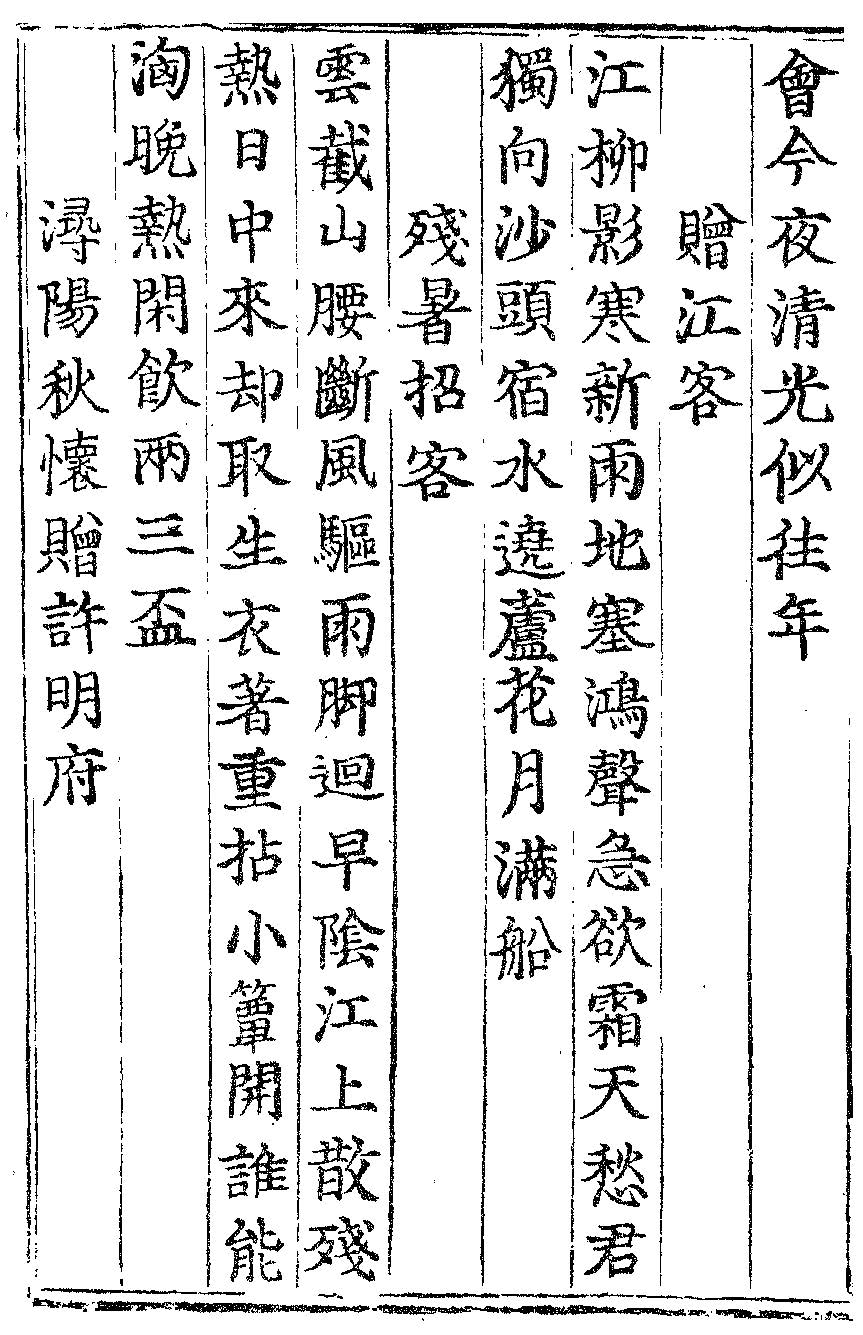 會今夜清光似往年
贈江客
江柳影寒新雨地塞鴻聲急欲霜天愁君
獨向沙頭宿水遶蘆花月滿船
殘暑招客
雲截山腰斷風驅雨脚迴早陰江上散殘
熱日中來却取生衣著重拈小簟開誰能
淘晚熱閑飲兩三盃
潯陽秋懷贈許明府